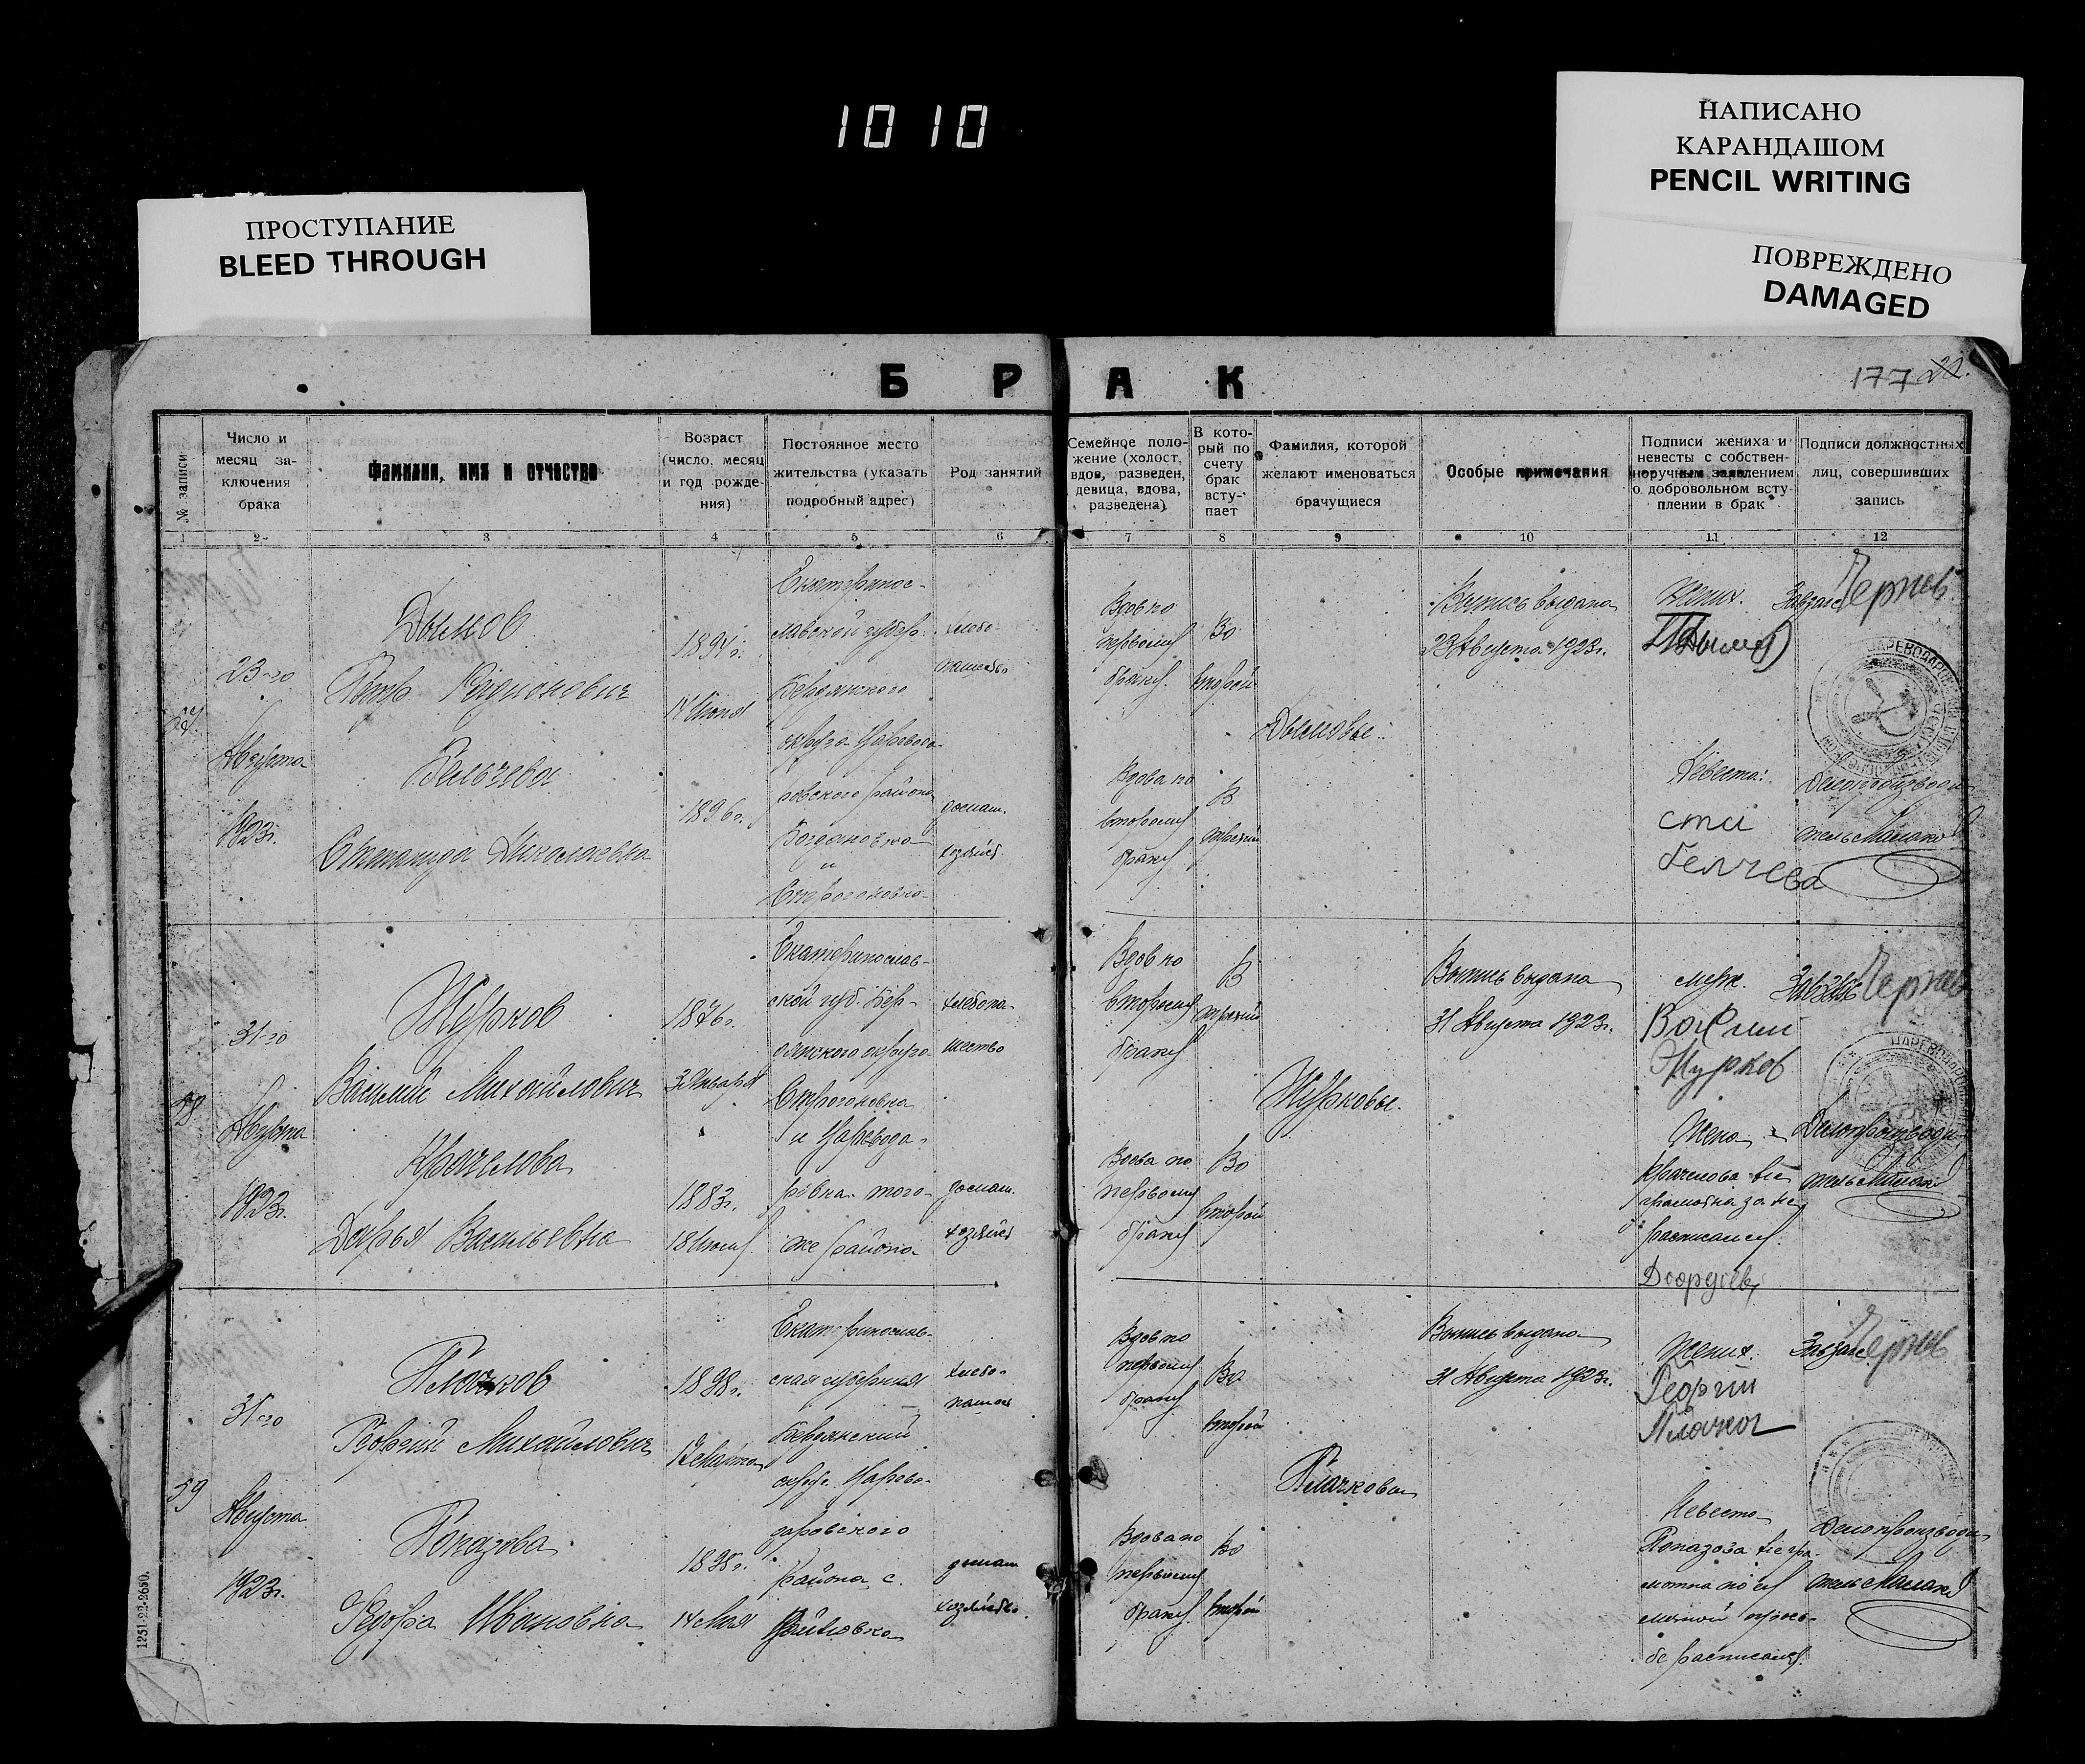 1010
НАПИСАНО
КАРАНДАШОМ
PENCIL WRITING
ПРОСТУПАНИЕ
BLEED THROUGH
ПОВРЕЖДЕНО
DAMAGED
БРАК
177 22.
№ записи
Число и
месяц за-
ключения
брака
Фамилия, имя и отчество
Возраст
(число, месяц
и год рожде-
ния)
Постоянное место
жительства (указать
подробный адрес)
Род занятий
Семейное поло-
жение (холост,
вдов, разведен,
девица, вдова,
разведена)
В кото-
рый по
счету
брак
всту-
пает
Фамилия, которой
желают именоваться
брачущиеся
Особые примечания
Подписи жениха и
невесты с собствен-
норучным заявлением
о добровольном всту-
плении в брак
Подписи должностных
лиц, совершивших
запись
1 2 3 4 5 6 7 8 9 10 11 12
23-го
Августа
1923г.
Дымов
Петр Родионович
Бельчева
Степанида Николаевна
1894г.
14 Июня
1896г.
Екатеринос-
лавской губер.
Бердянского
округа Царевода-
ровского района
Богдановка
и
Строгоновка
хлебо-
пашество
домаш.
хозяйст.
Вдов по
первому
браку.
Во
второй
Вдова по
второму
браку
В
третий
Дымовы.
Выпись выдана
23 Августа 1923г.
Жених.
ПДымов
Невеста:
сти
белчева
Завзагс Чернев
Делопроизводи
тель
58
31-го
Августа
1923г.
Журков
Василий Михайлович
Крачелова
Дарья Васильевна
1876г.
3 Января
1883г.
18 Июня
Екатеринослав-
ской губ. Бер-
дянского округа
Строгоновка
и Царевода-
ровка того-
же района
хлебопа-
шество
домаш.
хозяйст
Вдов по
второму
браку
В
третий
Вдова по
первому
браку
Во
второй
Журковы.
Выпись выдана
31 Августа 1923г.
муж.
Журков
Жена
Крачелова не
грамотна за не
расписался
Завзагс Чернев
Делопроизводи
тель
59
31-го
Августа
1923г.
Плачков
Георгий Михайлович
Попазова
Федора Ивановна
1898г.
1898г.
14 Мая
Екатеринослав-
ская губерния
Бердянский
округ. Царево-
даровского
района с.
Райновка
хлебо-
пашест
домаш
хозяйство
Вдов по
первому
браку
Во
второй
Вдова по
первому
браку
Во
второй
Плачковы
Выпись выдана
31 Августа 1923г.
Жених.
Георгий
Плачков
Невеста
Попазова негра-
мотна по ея
личной прось-
бе расписался
Завзагс Чернев
Делопроизводи
тель
1251-22-2650.